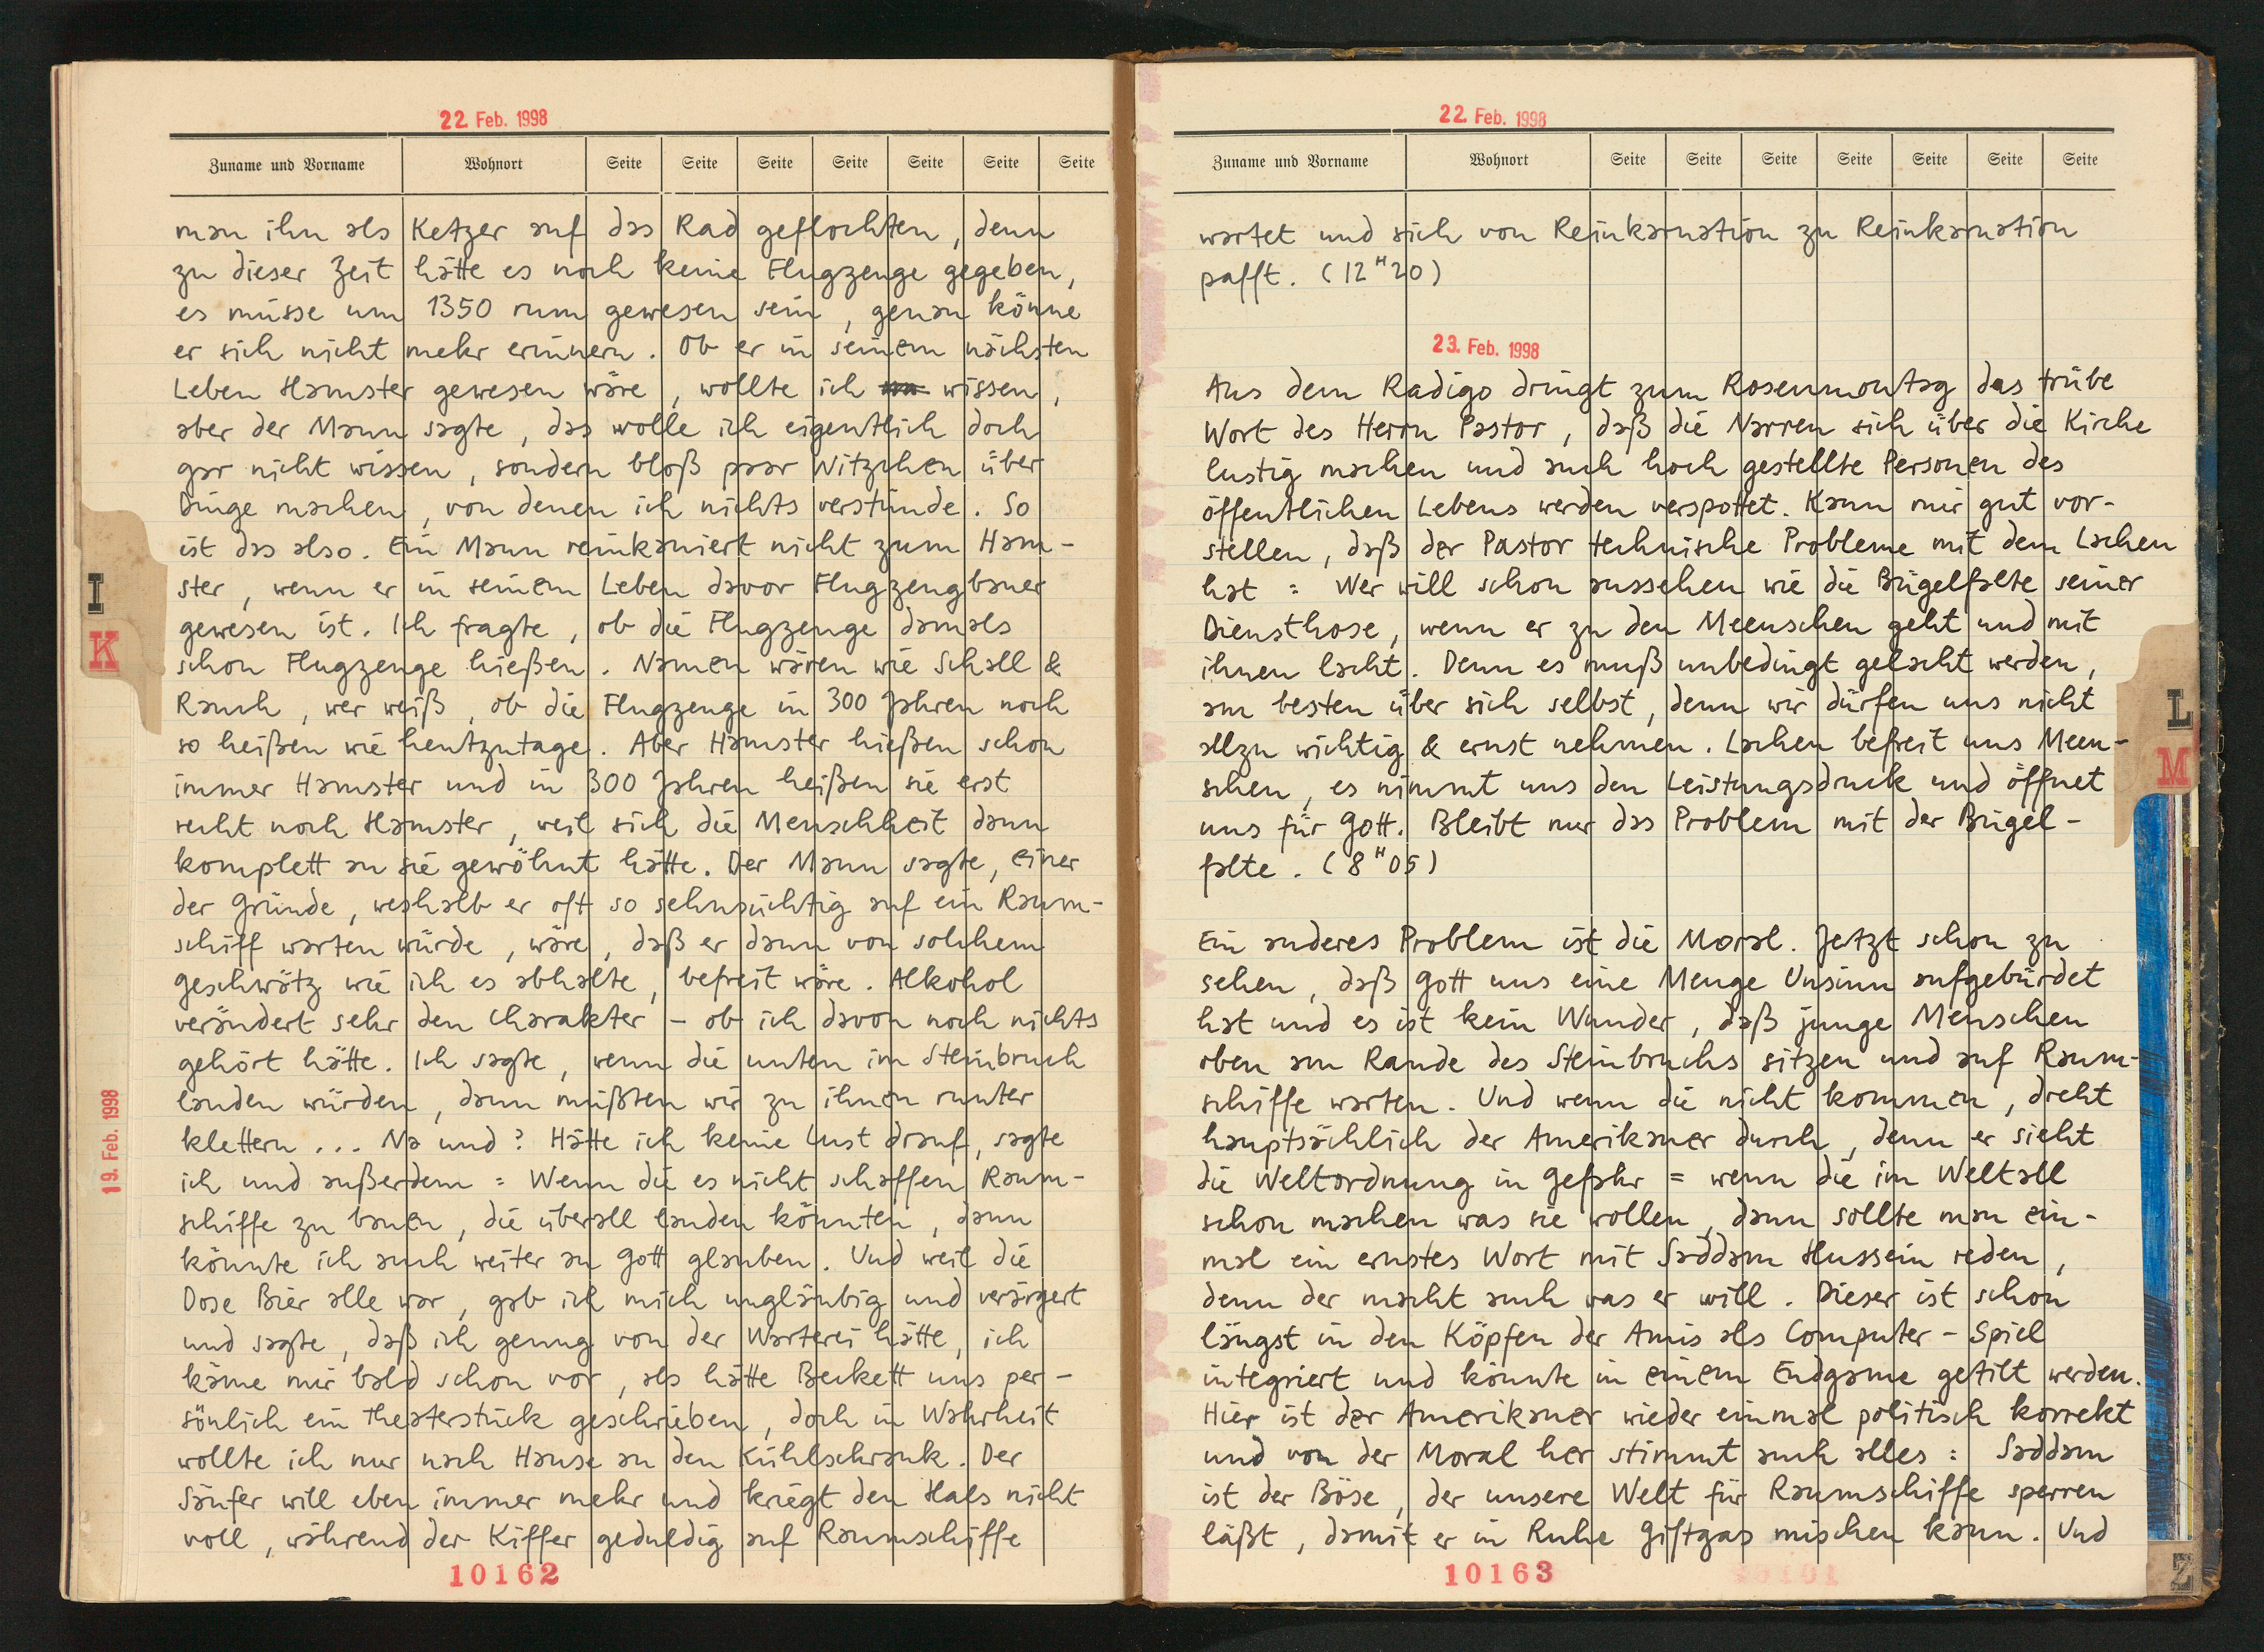 22 Feb. 1998
Zuname und Vorname Wohnort Seite Seite Seite Seite Seite Seite Seite
man ihn als Ketzer auf das Rad geflochten, denn
zu dieser Zeit hätte es noch keine Flugzeuge gegeben,
es müsse um 1350 rum gewesen sein, genau könne
er sich nicht mehr erinnern. Ob er in seinem nächsten
Leben Hamster gewesen wäre, wollte ich wissen,
aber der Mann sagte, das wolle ich eigentlich doch
gar nicht wissen, sondern bloß paar Witzchen über
Dinge machen, von denen ich nichts verstünde. So
ist das also. Ein Mann reinkaniert nicht zum Ham-
ster, wenn er in seinem Leben davor Flugzeugbauer
gewesen ist. Ich fragte, ob die Flugzeuge damals
schon Flugzeuge hießen. Namen wären wie Schall &
Rauch, wer weiß, ob die Flugzeuge in 300 Jahren noch
so heißen wie heutzutage. Aber Hamster hießen schon
immer Hamster und in 300 Jahren heißen sie erst
recht noch Hamster, weil sich die Menschheit dann
komplett an sie gewöhnt hätte. Der Mann sagte, einer
der Gründe, weshalb er oft so sehnsüchtig auf ein Raum-
schiff warten würde, wäre, daß er dann von solchem
Geschwätz wie ich es abhalte, befreit wäre. Alkohol
verändert sehr den Charakter – ob ich davon noch nichts
gehört hätte. Ich sagte, wenn die unten im Steinbruch
landen würden, dann müßten wir zu ihnen runter
klettern ... Na und? Hätte ich keine Lust drauf, sagte
ich und außerdem: Wenn die es nicht schaffen Raum-
schiffe zu bauen, die überall landen könnten, dann
könnte ich auch weiter an Gott glauben. Und weil die
Dose Bier alle war, gab ich mich ungläubig und verärgert
und sagte, daß ich genug von der Warterei hätte, ich
käme mir bald schon vor, als hätte Beckett uns per-
sönlich ein Theaterstück geschrieben, doch in Wahrheit
wollte ich nur nach Hause an den Kühlschrank. Der
Säufer will eben immer mehr und kriegt den Hals nicht
voll, während der Kiffer geduldig auf Raumschiffe
10162
I
K
19. Feb. 1998
22 Feb. 1998
Zuname und Vorname Wohnort Seite Seite Seite Seite Seite Seite Seite
wartet und sich von Reinkarnation zu Reinkarnation
pafft. (12 H 20)
23. Feb. 1998
Aus dem Radigo dringt zum Rosenmontag das trübe
Wort des Herrn Pastor, daß die Narren sich über die Kirche
lustig machen und auch hoch gestellte Personen des
öffentlichen Lebens werden verspottet. Kann mir gut vor-
stellen, daß der Pastor technische Probleme mit dem Lachen
hat: Wer will schon aussehen wie die Bügelfalte seiner
Diensthose, wenn er zu den Meenschen geht und mit
ihnen lacht. Denn es muß unbedingt gelacht werden,
am besten über sich selbst, denn wir dürfen uns nicht
allzu wichtig & ernst nehmen. Lachen befreit uns Meen-
schen, es nimmt uns den Leistungsdruck und öffnet
uns für Gott. Bleibt nur das Problem mit der Bügel-
falte. (8 H 05)
Ein anderes Problem ist die Moral. Jetzt schon zu
sehen, daß Gott uns eine Menge Unsinn aufgebürdet
hat und es ist kein Wunder, daß junge Menschen
oben am Rande des Steinbruchs sitzen und auf Raum-
schiffe warten. Und wenn die nicht kommen, dreht
hauptsächlich der Amerikaner durch, denn er sieht
die Weltordnung in Gefahr = wenn die im Weltall
schon machen was sie wollen, dann sollte man ein-
mal ein ernstes Wort mit Saddam Hussein reden,
denn der macht auch was er will. Dieser ist schon
längst in den Köpfen der Amis als Computer-Spiel
integriert und könnte in einem Endgame getilt werden.
Hier ist der Amerikaner wieder einmal politisch korrekt
und von der Moral her stimmt auch alles: Saddam
ist der Böse, der unsere Welt für Raumschiffe sperren
läßt, damit er in Ruhe Giftgas mischen kann. Und
10163
L
M
Z